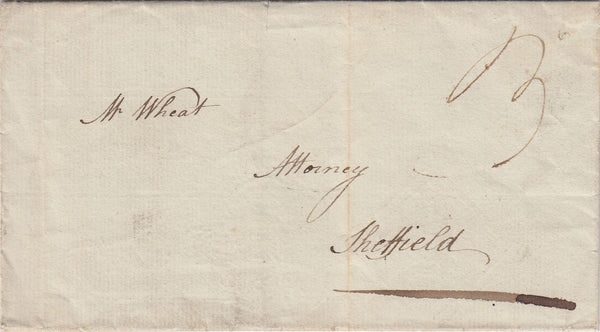 Mr Wheat
Attorney
Sheffield